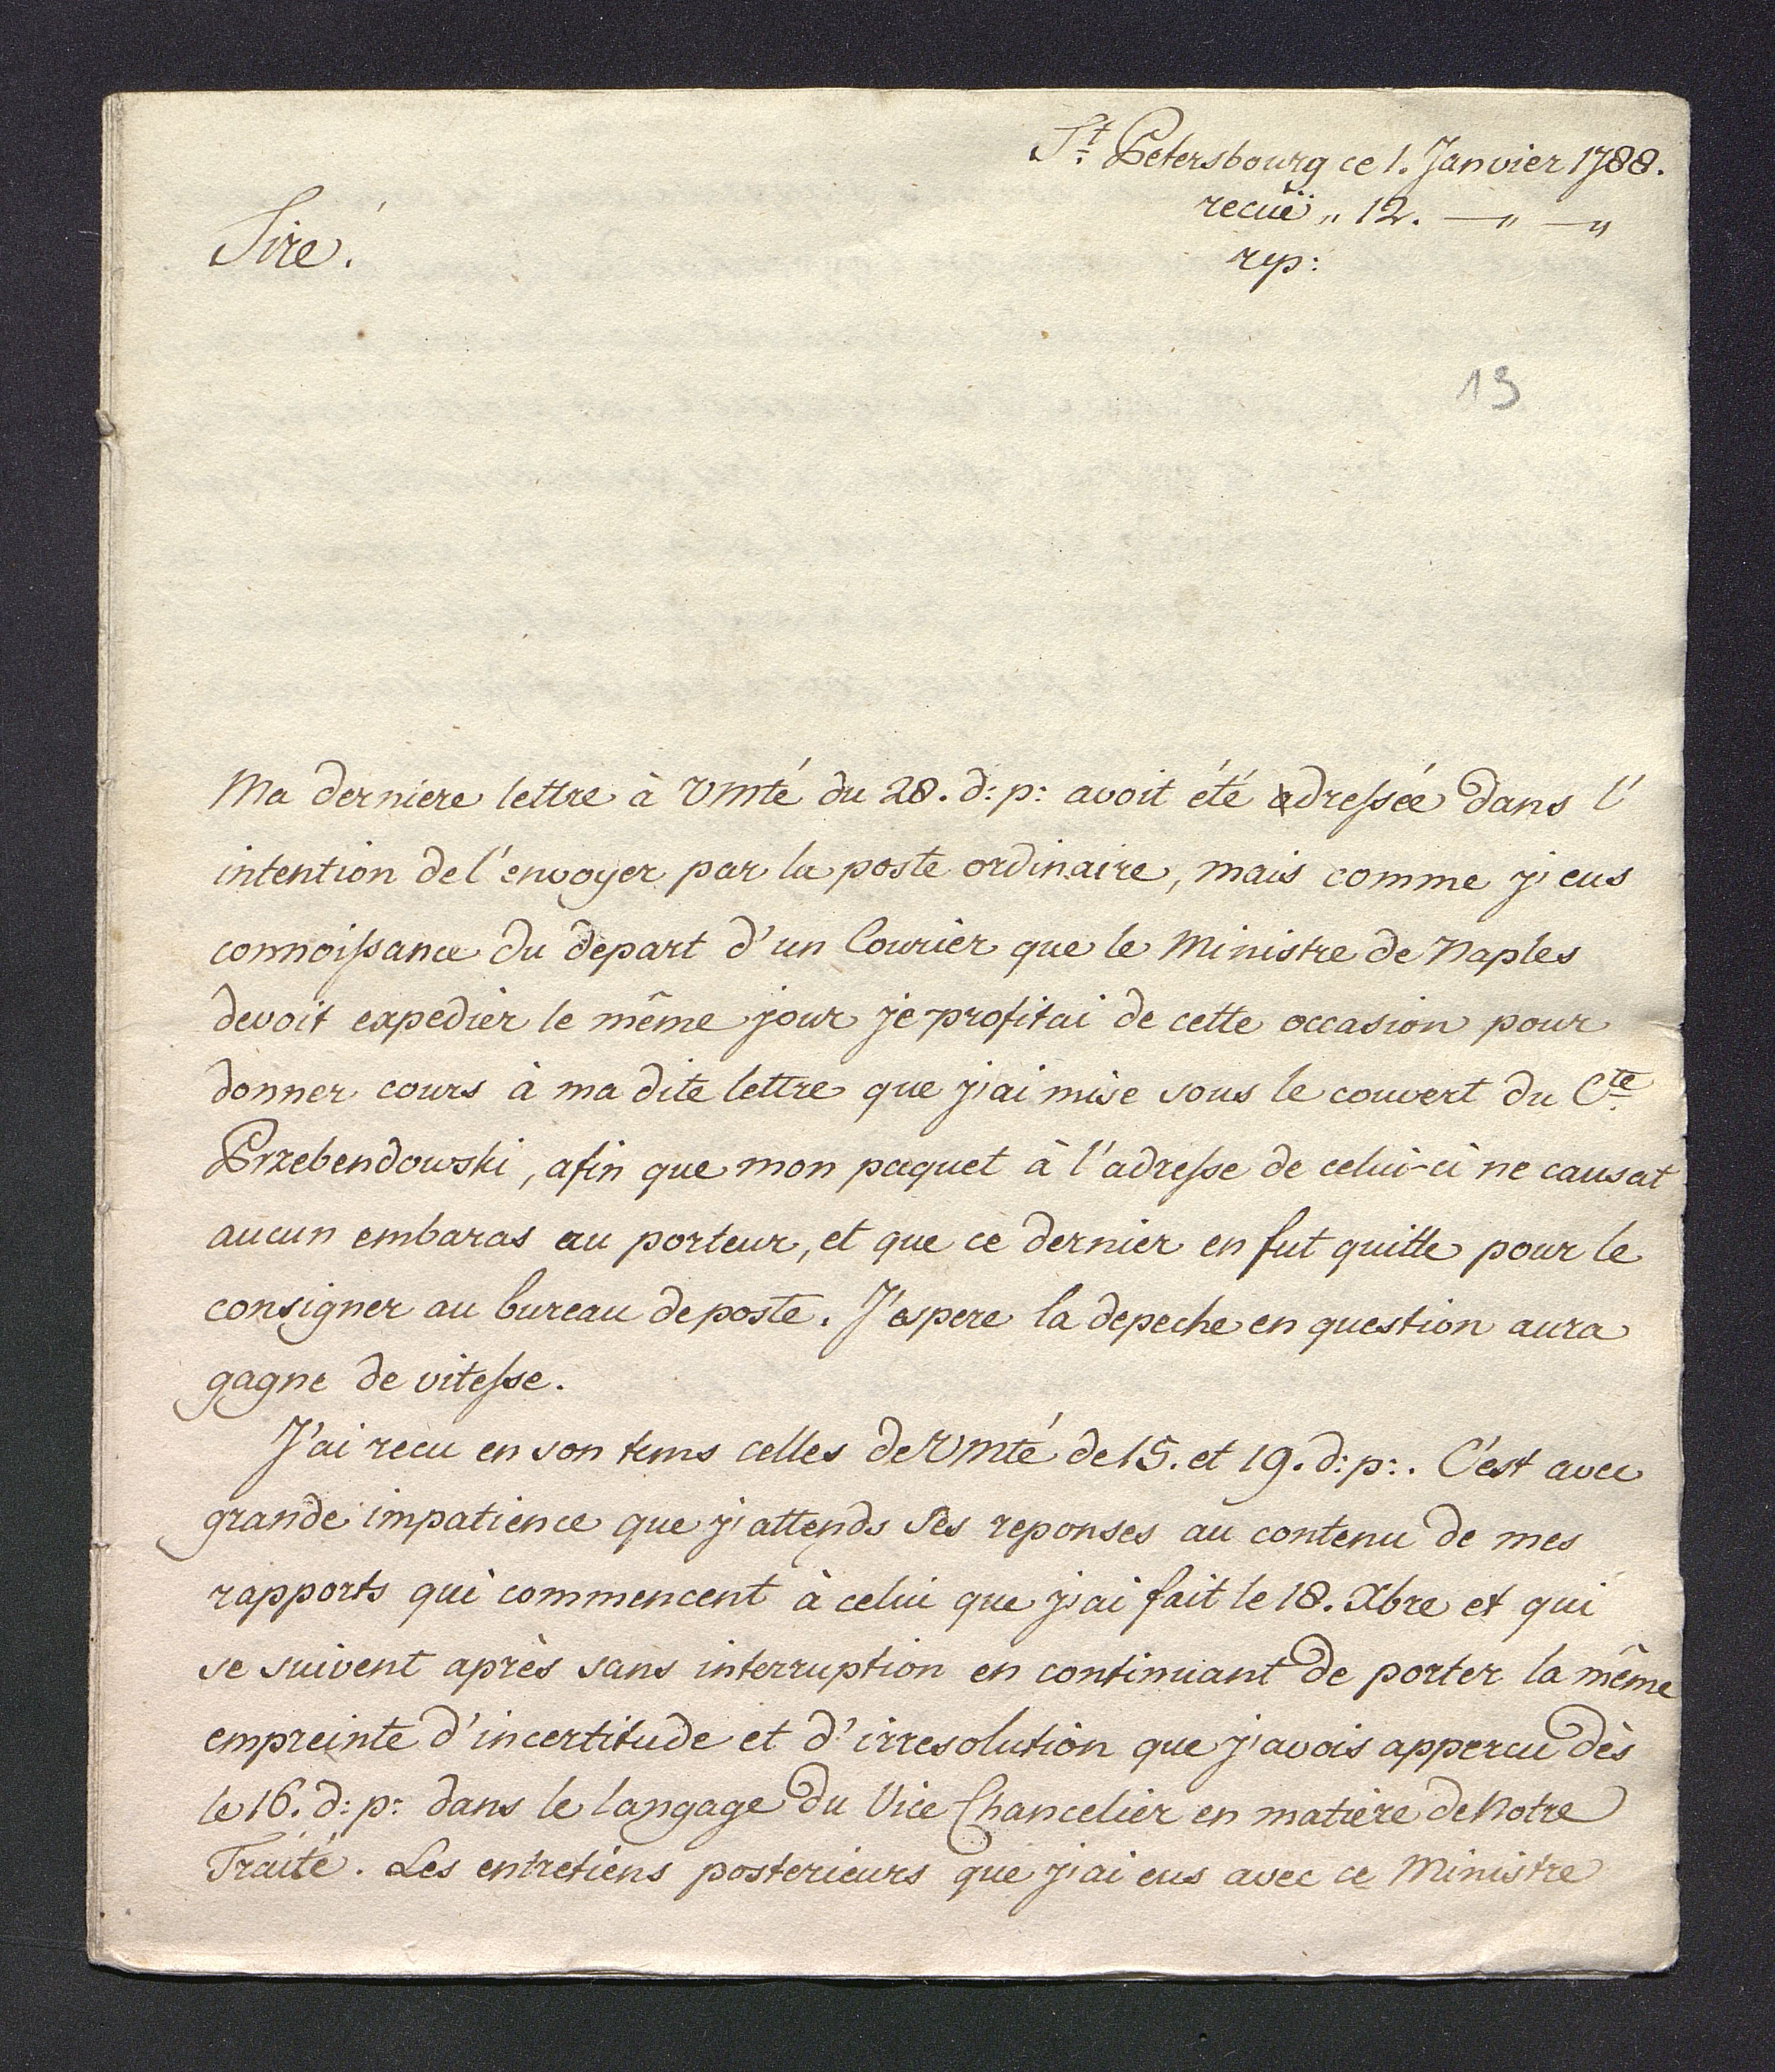 St. Petersbourg ce 1. Janvier 1788.
recuë „ 12. —„ —„
rep:
Sire!
13
Ma derniere lettre à VMté du 28. d: p: avoit été adressée dans l'
intention de l'envoyer par la poste ordinaire, mais comme j'eus
connoissance du depart d'un Courier que le Ministre de Naples
devoit expedier le même jour je profitai de cette occasion pour
donner cours à ma dite lettre que j'ai mise sous le couvert du Cte
Przebendowski, afin que mon paquet à l'adresse de celui-ci ne causat
aucun embaras au porteur, et que ce dernier en fut quitte pour le
consigner au bureau de poste. J'espere la depeche en question aura
gagne de vitesse.
J'ai recu en son tems celles de VMté de 15. et 19. d: p:. C'est avec
grande impatience que j'attends Ses reponses au contenu de mes
rapports qui commencent à celui que j'ai fait le 18. Xbre et qui
se suivent après sans interruption en continuant de porter la même
empreinte d'incertitude et d'irresolution que j'avois appercu dès
le 16. d: p: dans le langage du Vice Chancelier en matière de Notre
Traité. Les entretiens posterieurs que j'ai eus avec ce Ministre